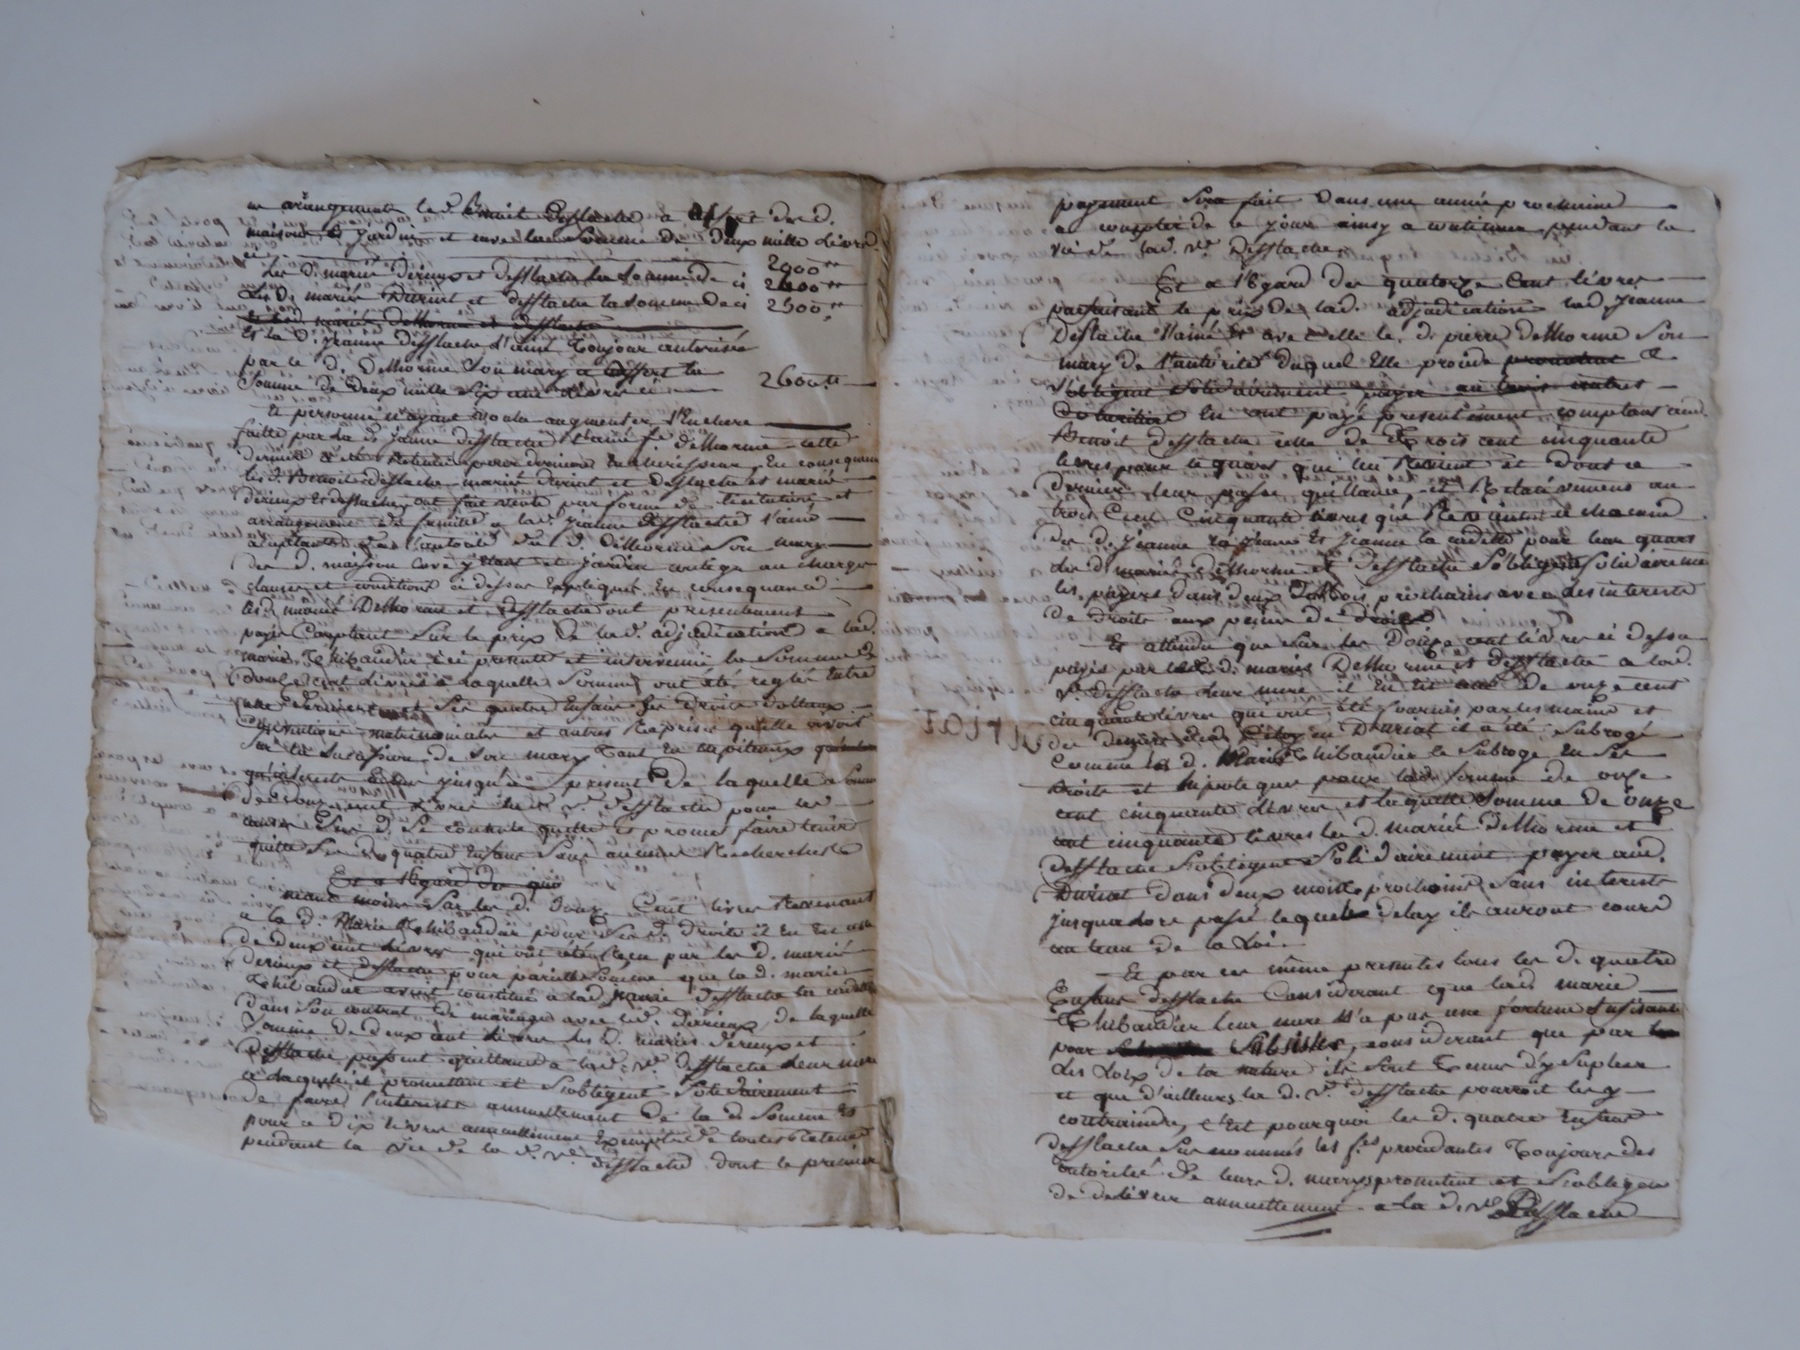 en arrangements le d. Benoit Desflache a offert des d.
maison et jardin et cave la Somme de deux mille livres
ci 2000
Les d. mariés Derieux et desflache la Somme de ci 2400
Les d. mariés Duriat et desflache la Somme de ci 2500
Les d. mariés Delhorme et desflache
Et la d. jeanne desflache l'ainé toujour autorisée
par le d. Delhorme son mary a offert la
Somme de Deux mille Six cent livres ci 2600
Et personne n'ayant voulu augmenter l'Enchere
faitte par la d. jeanne desflache l'ainé fe. delhorme cette
derniere a été Retenue pour derniere Encherisseur, En consequence
les d. Benoit desflache mariés Duriat et desflache et mariés
derieux et desflache ont fait vente par forme de licitation et
arrangement de famille a la d. jeanne desflache l'ainé
acceptante de l'autorité du d. Delhorme Son mary
des d. maison cave et jardin au charges
clauses et conditions ci dessus Expliqués En consequance
les d. mariés Delhorme et desflache ont presentement
payé Comptant Sur le prix de la d. adjudication a la d.
marie Thibaudier ici presente et intervenue la Somme de
douze cent livres a laquelle Somme ont été reglés Entre
Ses quatre Enfans Ses Droits Dottaux
Convention matrimoniale et autres Reprises qu'elle avoit
Sur la Succession de Son mary tant En capiteaux
qu'interests jusqu'a present De laquelle Somme
de douze cent livres la d. ve. desflache pour les
causes Sus d. Se contente quitte et promet faire tenir
quitte Ses d. quatre Enfans Sans aucunes Recherches
Et a l'Egard des
neant moins Sur les d. douze Cent livres Revenant
a la d. Marie Thibaudier pour Ses d. droits il En Est
de Deux cent livres qui ont été Reçu par les d. mariés
Derieux et desflache pour pareille Somme que la d. marie
Thibaudier avoit constitué a la d. Marie desflache la cadette
Dans Son contrat de mariage avec le d. Derieux, de laquelle
Somme de Deux cent livres les d. mariés derieux et
Desflache passent quittance a la d. ve. desflache leur mere
a laquelle ils promettent et s'obligent Solidairement
De faire l'interest annuellement de la d. Somme Et
pour a dix livres annuellement Exempte de toutes Retenues
pendant la vie de la d. ve. desflache dont le premier
payement Sera fait dans une année prochaine
a compter de ce jour ainsy a continuer pendant la
vie de la d. ve. Desflache
Et a l'Egard des quatorze Cent livres
parfaisant le prix de la d. adjudication la d. Jeanne
Desflache l'ainé Et avec elle le d. pierre Delhorme Son
mary de l'autorité duquel Elle procede
s'obligent Solidairement payer
En ont payé presentement comptant aud.
Benoit desflache celle de Trois cent cinquante
livres pour le quart qui lui Revient et dont ce
dernier leur passe quittance, et Relativement au
trois Cent Cinquante livres que Revient a chacune
des d. jeanne la jeune Et jeanne la cadette pour leur quart
les d. mariés Delhorme et Desflache s'obligent Solidairement
les payer dans deux mois prochains avec les interests
De droits aux peines de droits
Et attendu que Sur les Douze cent livres ci dessus
payés par les d. mariés Delhorme et desflache a la d.
ve. desflache leur mere il En Est de onze cent
cinquante livres qui ont été fournis par les mains et
des deniers du d. Duriat il a été Subrogé
Comme la d. Marie Thibaudier le Subroge En Ses
Droits et hipoteques pour la d. Somme de onze
cent cinquante livres, et laquelle Somme de onze
cent cinquante livres les d. mariés Delhorme et
desflache s'obligent Solidairement payer aud.
Duriat dans deux mois prochains Sans interests
jusqu'a lors passé lequel delay ils auront cours
au taux de la Loi.
Et par ces même presentes tous les d. quatre
Enfans Desflache Considerant que la d. marie
Thibaudier leur mere n'a pas une fortune Sufisante
pour Subsister, considerant que par
les Loix de la nature ils Sont tenus d'y Supleer
et que d'ailleurs la d. ve. desflache pourroit les y
contraindre, c'Est pourquoi les d. quatre Enfans
desflache Sus nommés les fes. procedantes toujours des
autorités de leurs d. marys promettent et s'obligent
de delivrer annuellement a la d. ve. Desflache